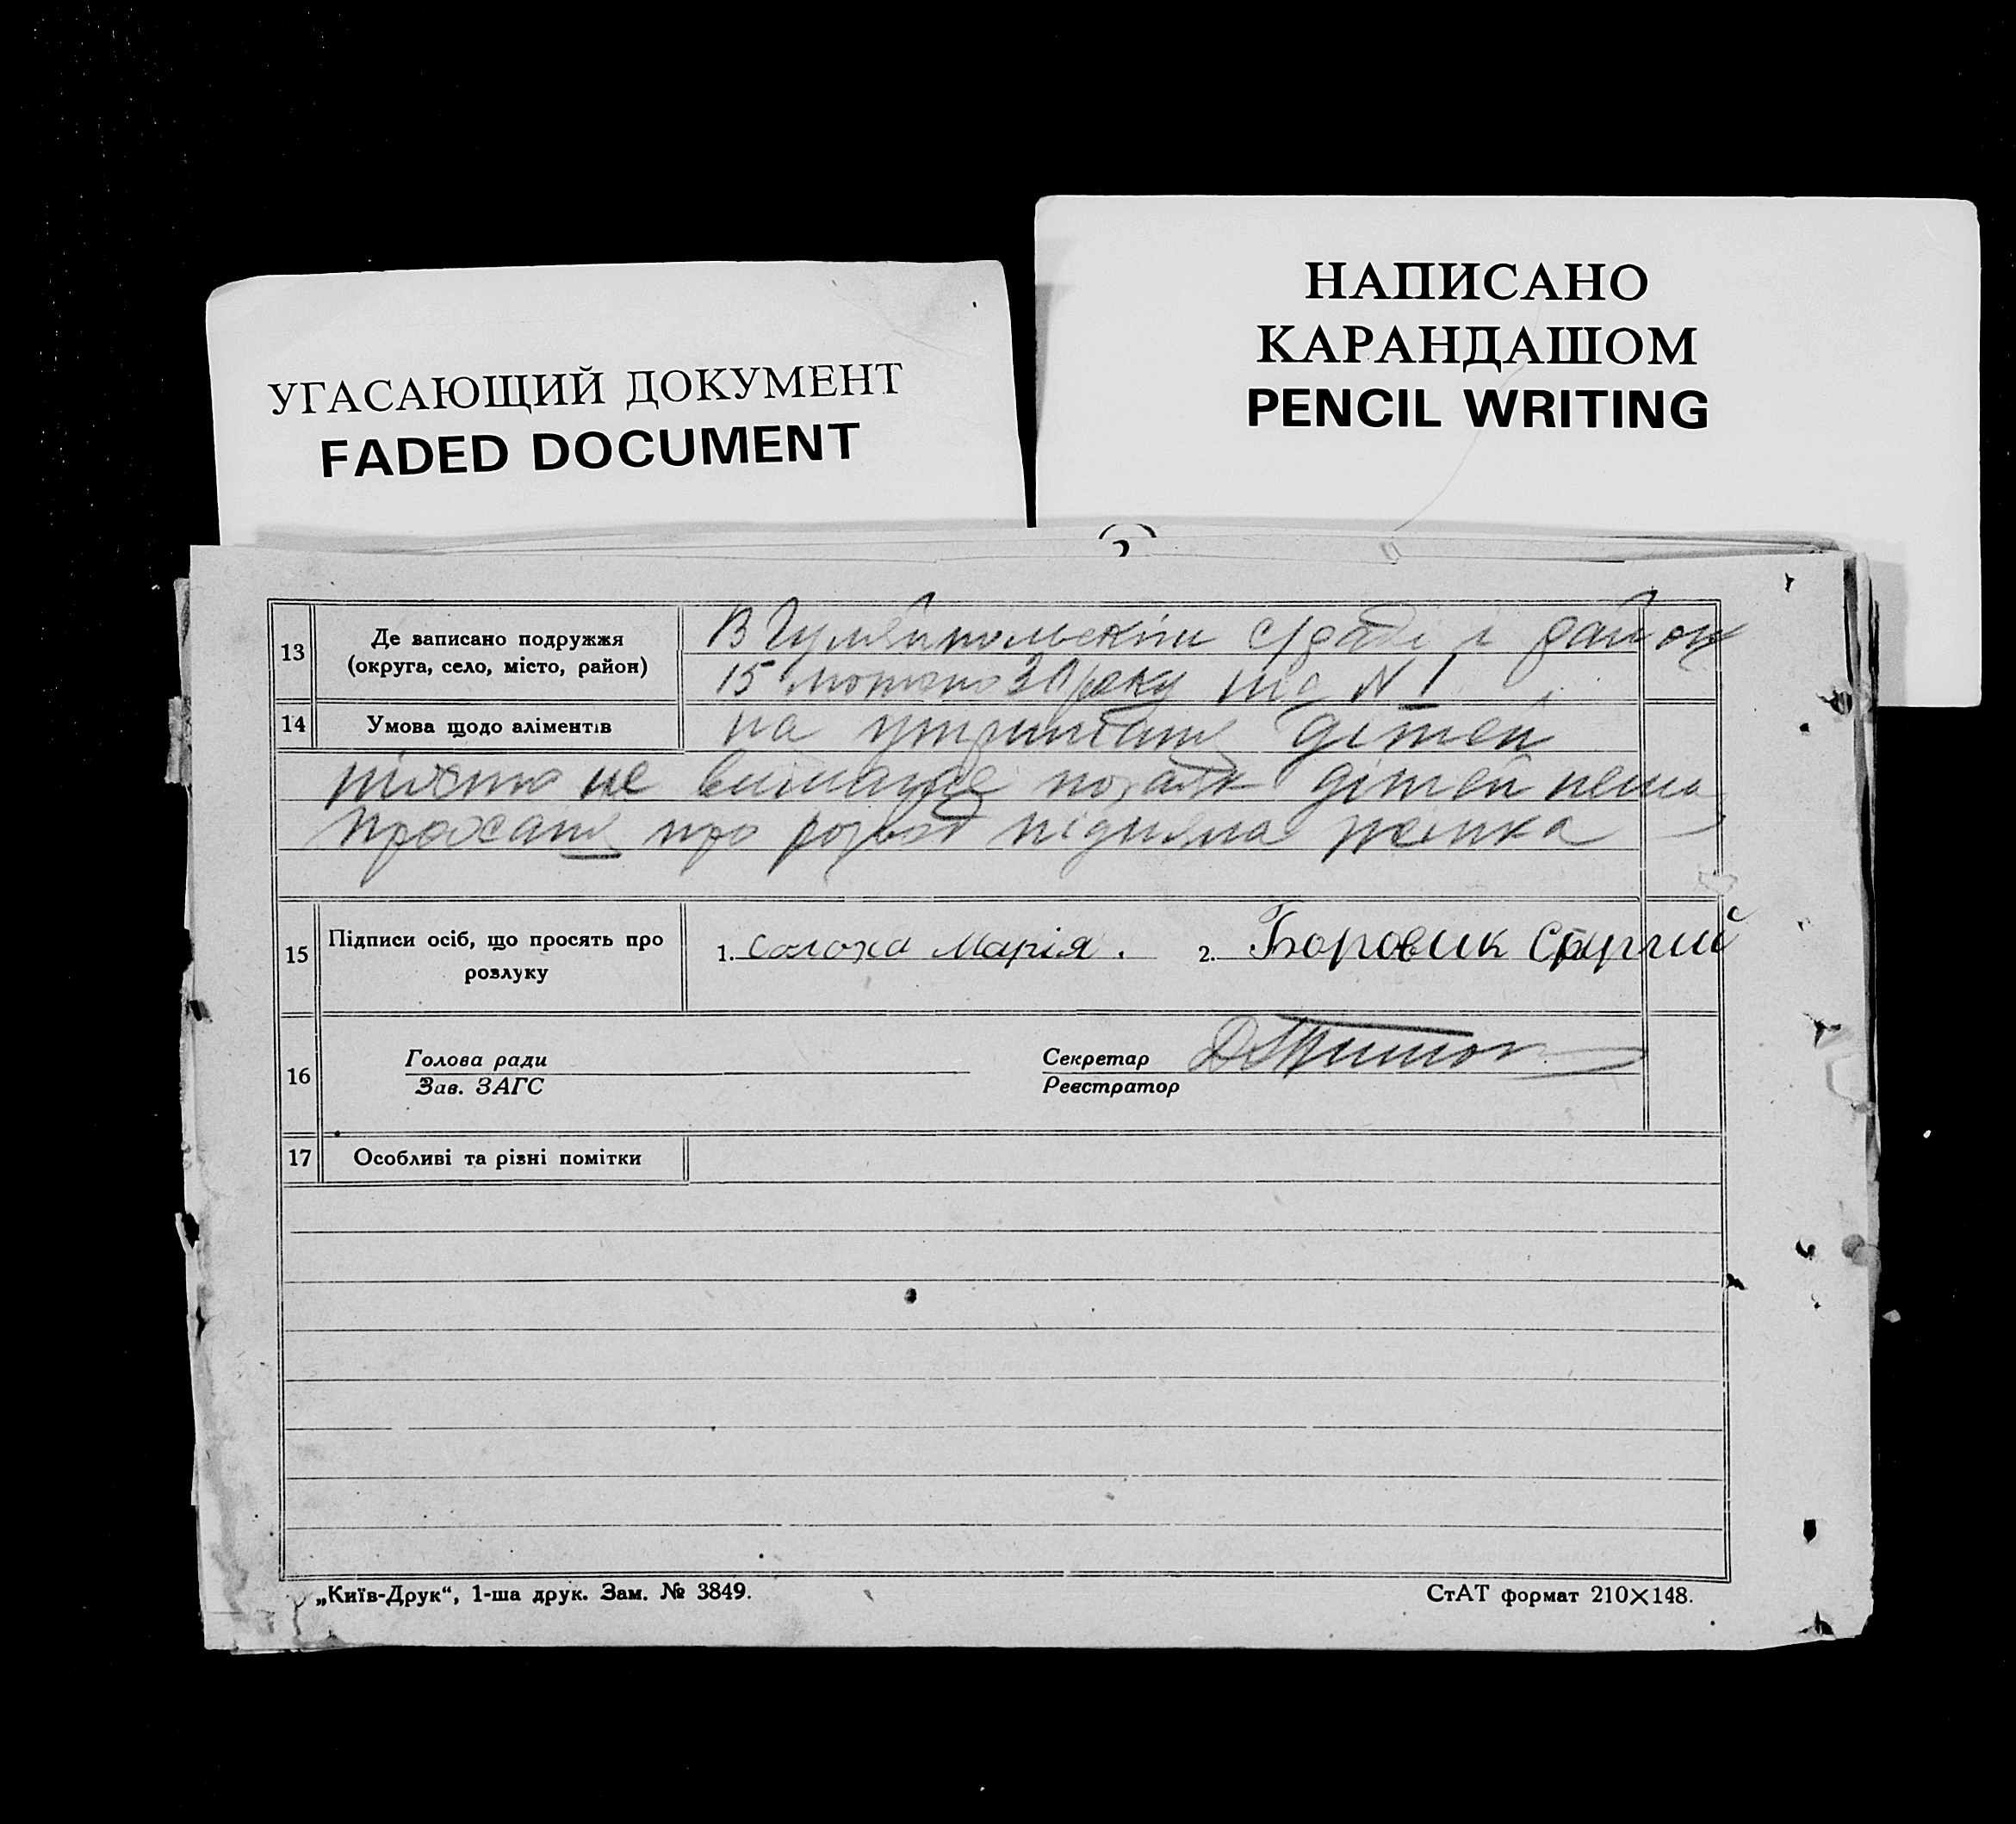 УГАСАЮЩИЙ ДОКУМЕНТ
FADED DOCUMENT
НАПИСАНО
КАРАНДАШОМ
PENCIL WRITING
13
Де записано подружжя
(округа, село, місто, район)
В Гуляйпольскім с/раді і район
15 лютого 30 року під N 1
14
Умова щодо аліментів
на утримання дітей
ніхто не вимагає позаяк дітей нема
Прохання про розвод підняла жінка
15
Підписи осіб, що просять про
розлуку
1. Солоха Марія.
2. Боровик Сергий
16
Голова ради
Зав. ЗАГС
Секретар
Реєстратор
17
Особливі та різні помітки
„Київ-Друк“, 1-ша друк. Зам. № 3849.
СтАТ формат 210×148.